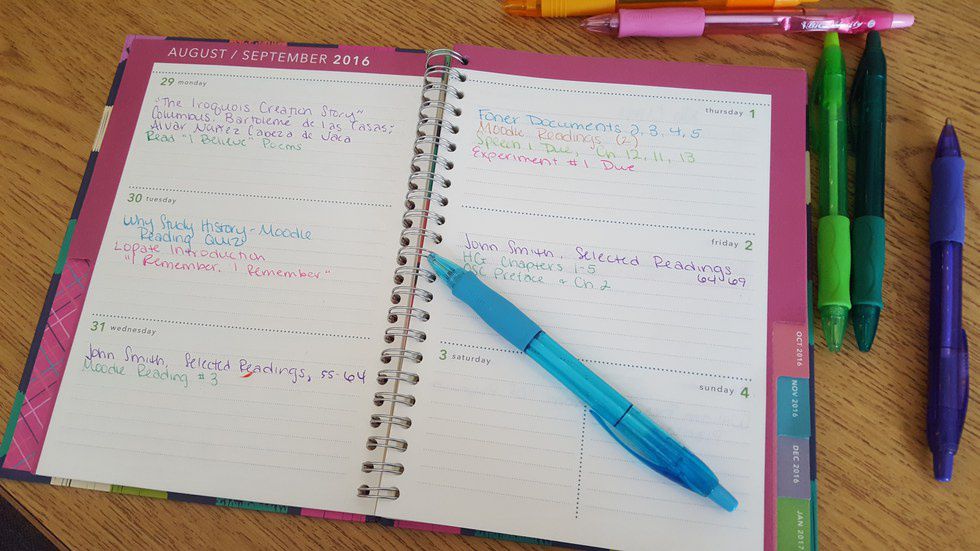 AUGUST / SEPTEMBER 2016
29 monday
"The Iroquois Creation Story"
Columbus, Bartoleme de las Casas;
Alvar Núñez Cabeza de Vaca
Read "I Believe" Poems
30 tuesday
Why Study History - Moodle
Reading Quiz
Lopate Introduction
"I Remember, I Remember"
31 wednesday
John Smith, Selected Readings, 55-64
Moodle Reading #3
thursday 1
Foner Documents 2, 3, 4, 5
Moodle Readings (2)
Speech 1 Due, Ch. 12, 11, 13
Experiment #1 Due
friday 2
John Smith, Selected Readings
64-69
HG Chapters 1-5
Preface & Ch. 2
3 saturday
sunday 4
OCT 2016
NOV 2016
DEC 2016
JAN 2017